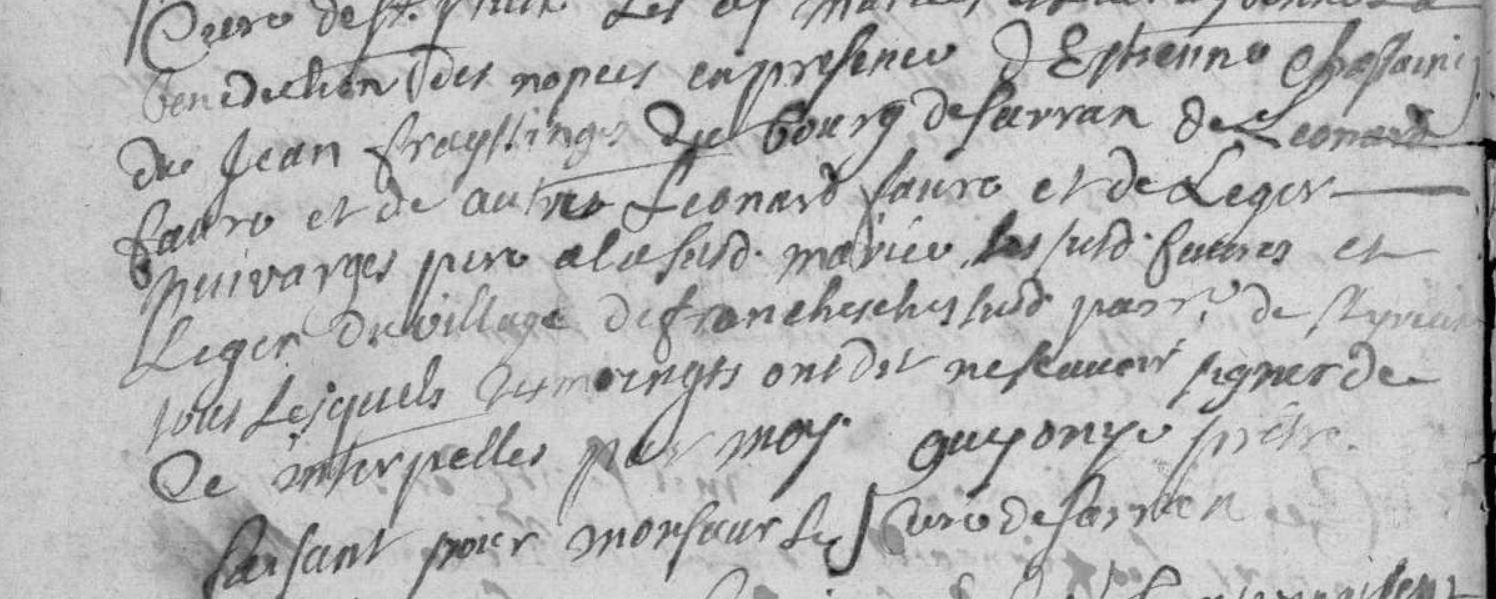 Curé de St. 
benediction des nopces en presence d'Estienne Chassaing
de Jean frayssinge du bourg de sarran de Leonard
faure et de autre Leonard faure et de Leger
puivarges pere a la susd. mariée, les susd. faures et
Leger du village de francheseches susd. parr. de St yrieix
tous lesquels tesmoingts ont dit ne scavoir signer de
ce interpelles par moy. guyonye prêtre.
faisant pour monsieur le Curé de sarran